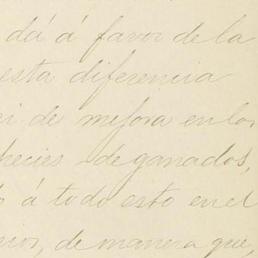 dá á favor de la
esta diferencia
ei de mejora en los
species de ganados,
ó á todo esto en el
nor, de manera que,